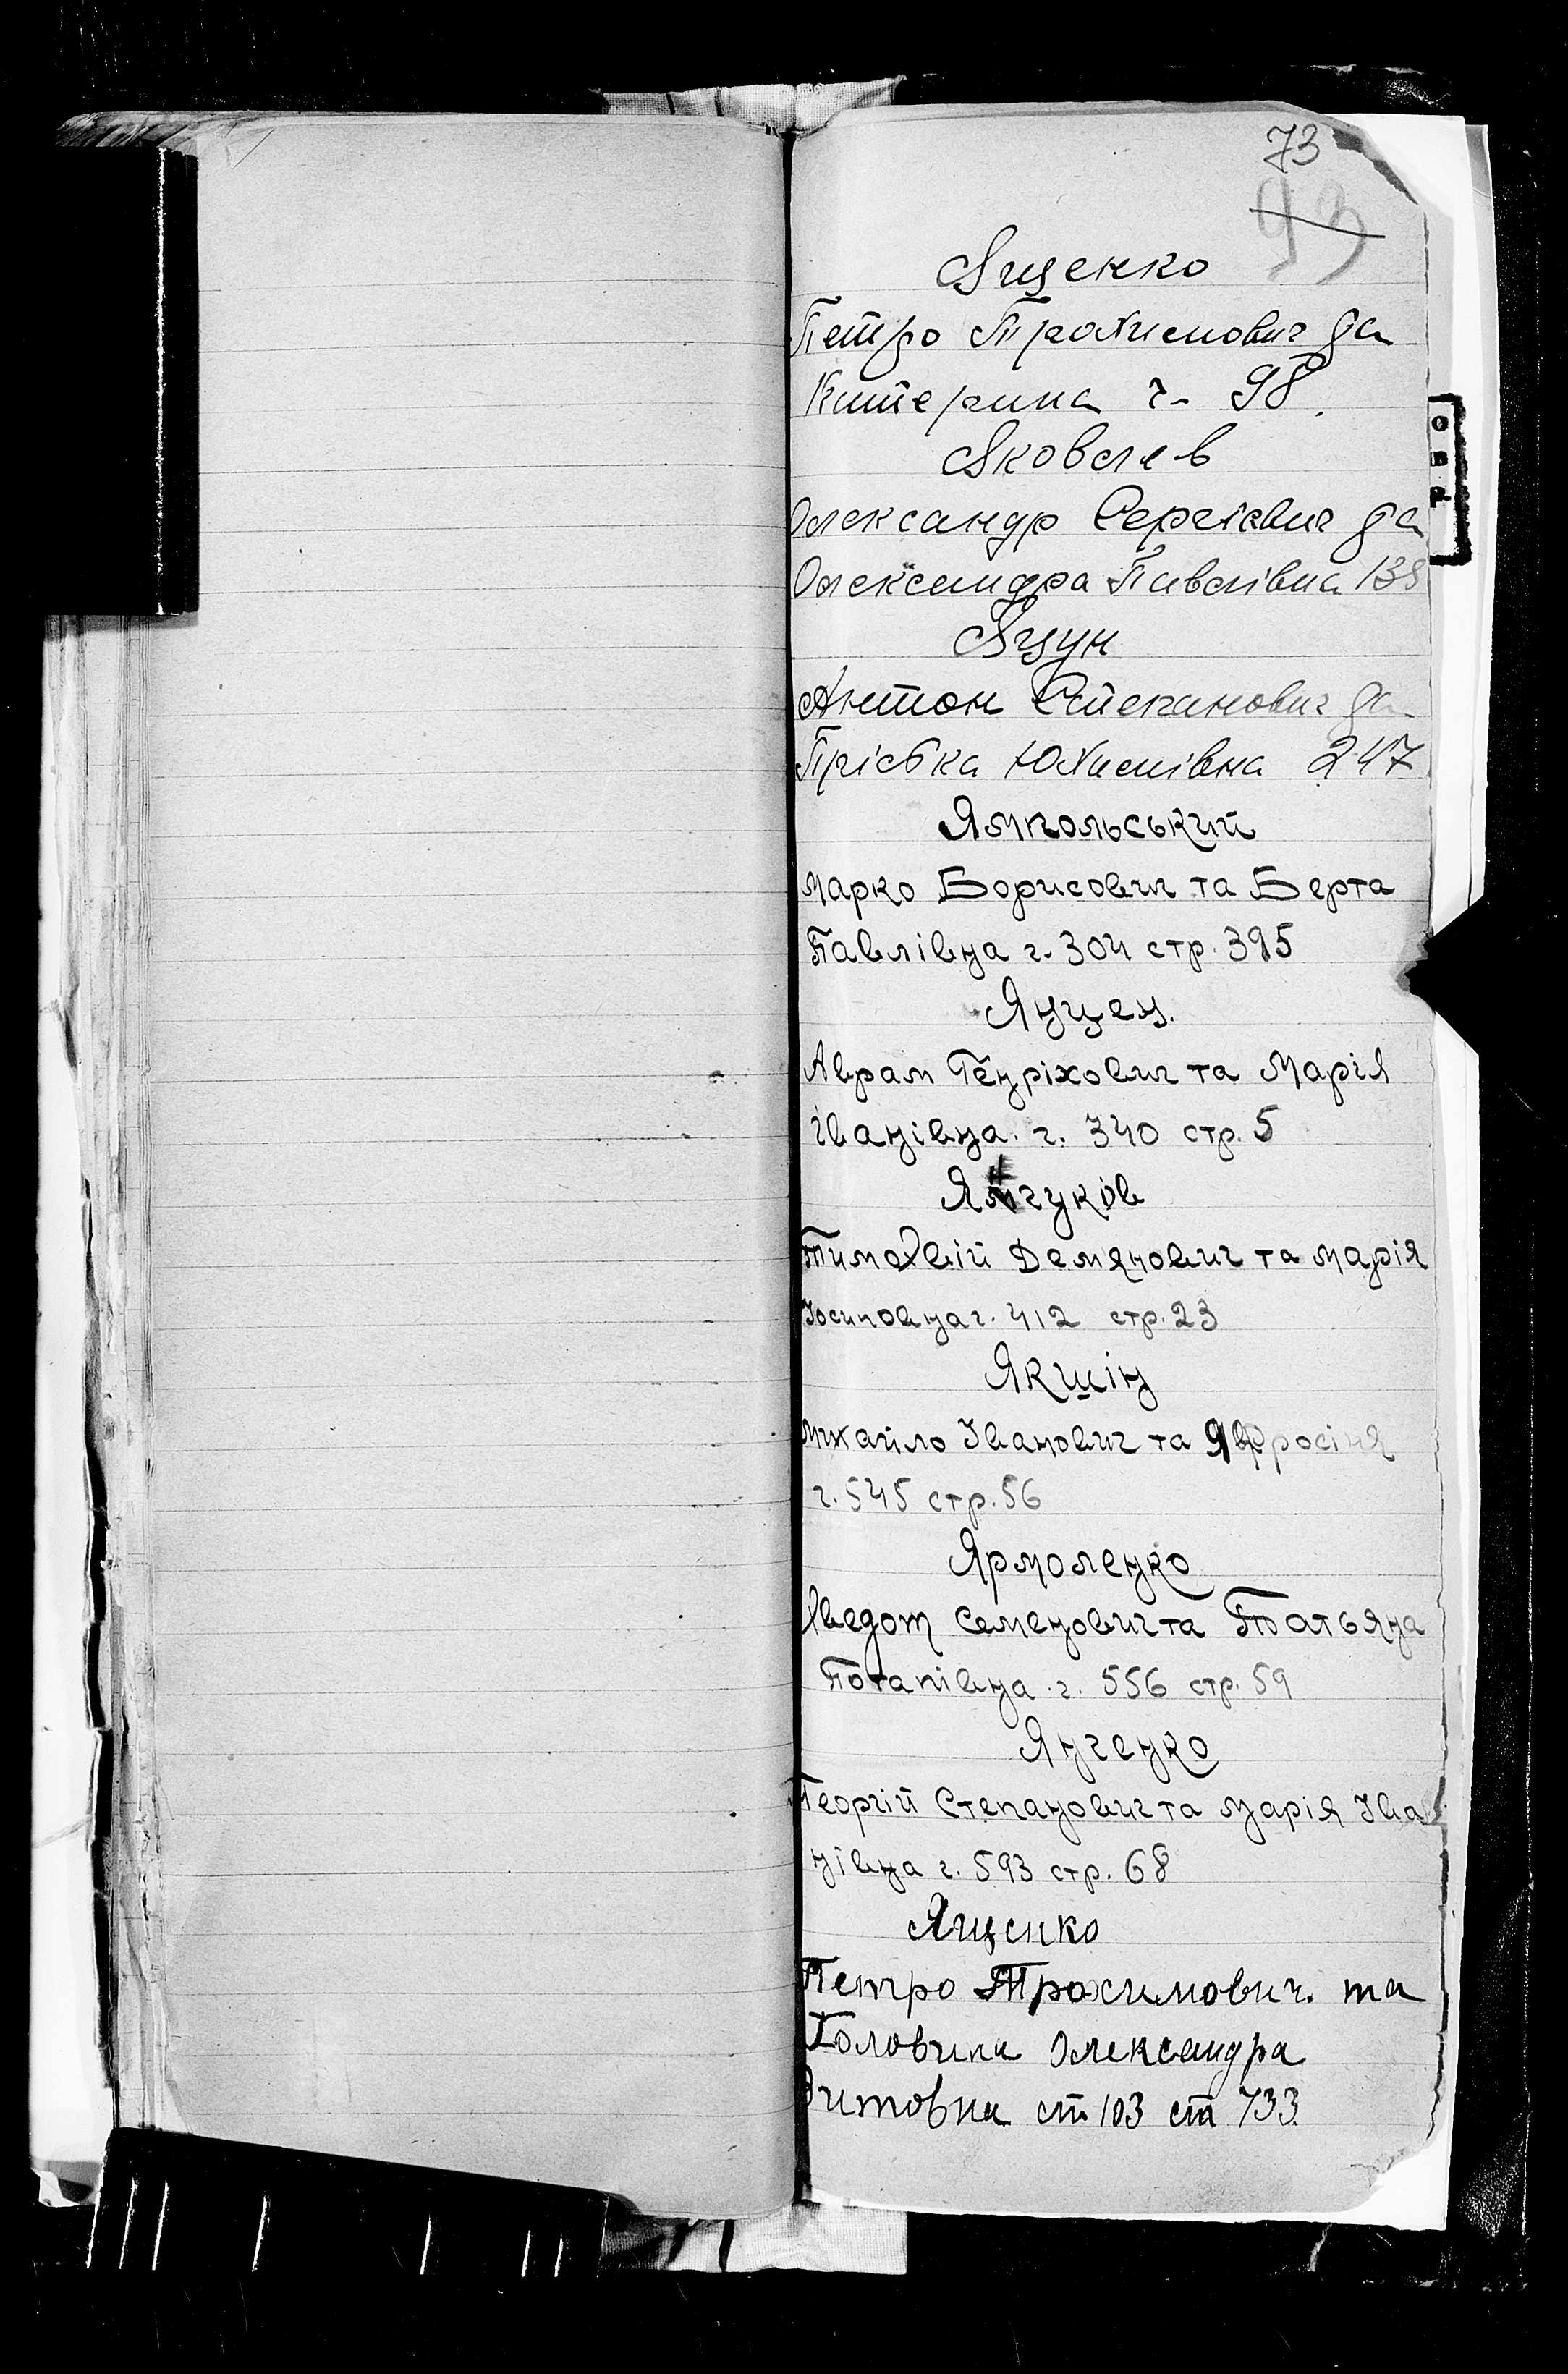 73
93
Ященко
Петро Трохимович да
Катерина г- 98.
Яковлев
Олександр Сергієвич да
Олександра Павлівна 138
Яцун
Антон Степанович да
Прісбка Юхимівна 247
Ямпольський
Марко Борисович та Берта
Павлівна г. 304 стр. 395
Янцен.
Аврам Генріхович та Марія
Іванівна. г. 340 стр. 5
Тимохвій Демянович та Марія
Йосиповна г. 412 стр. 23
Якшін
Михайло Іванович та Явфросінія
г. 545 стр. 56
Ярмоленко
Хведот Семенович та Татьяна
Потапівна г. 556 стр. 59
Янченко
Георгій Степанович та Марія Іва
нівна г. 593 стр. 68
Ященко
Петро Трохимович. та
Головина Олександра
Титовна ст 103 ст 733.